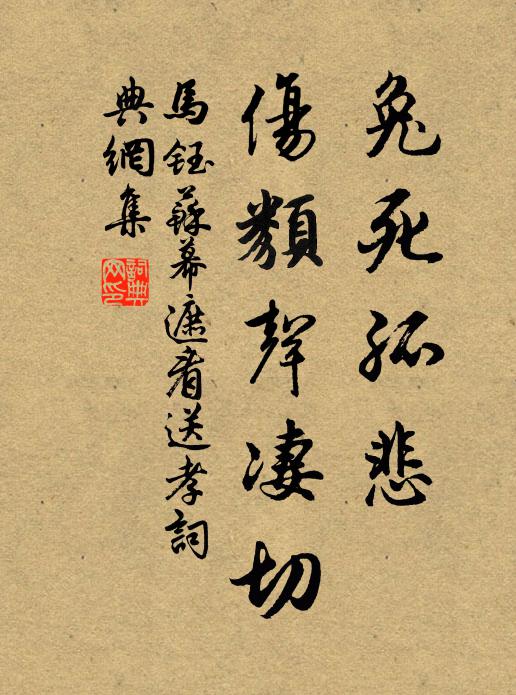 兔死孤悲
傷類聲凄切
馬鈺蘇幕遮看送孝詞
典網集
詞典網印